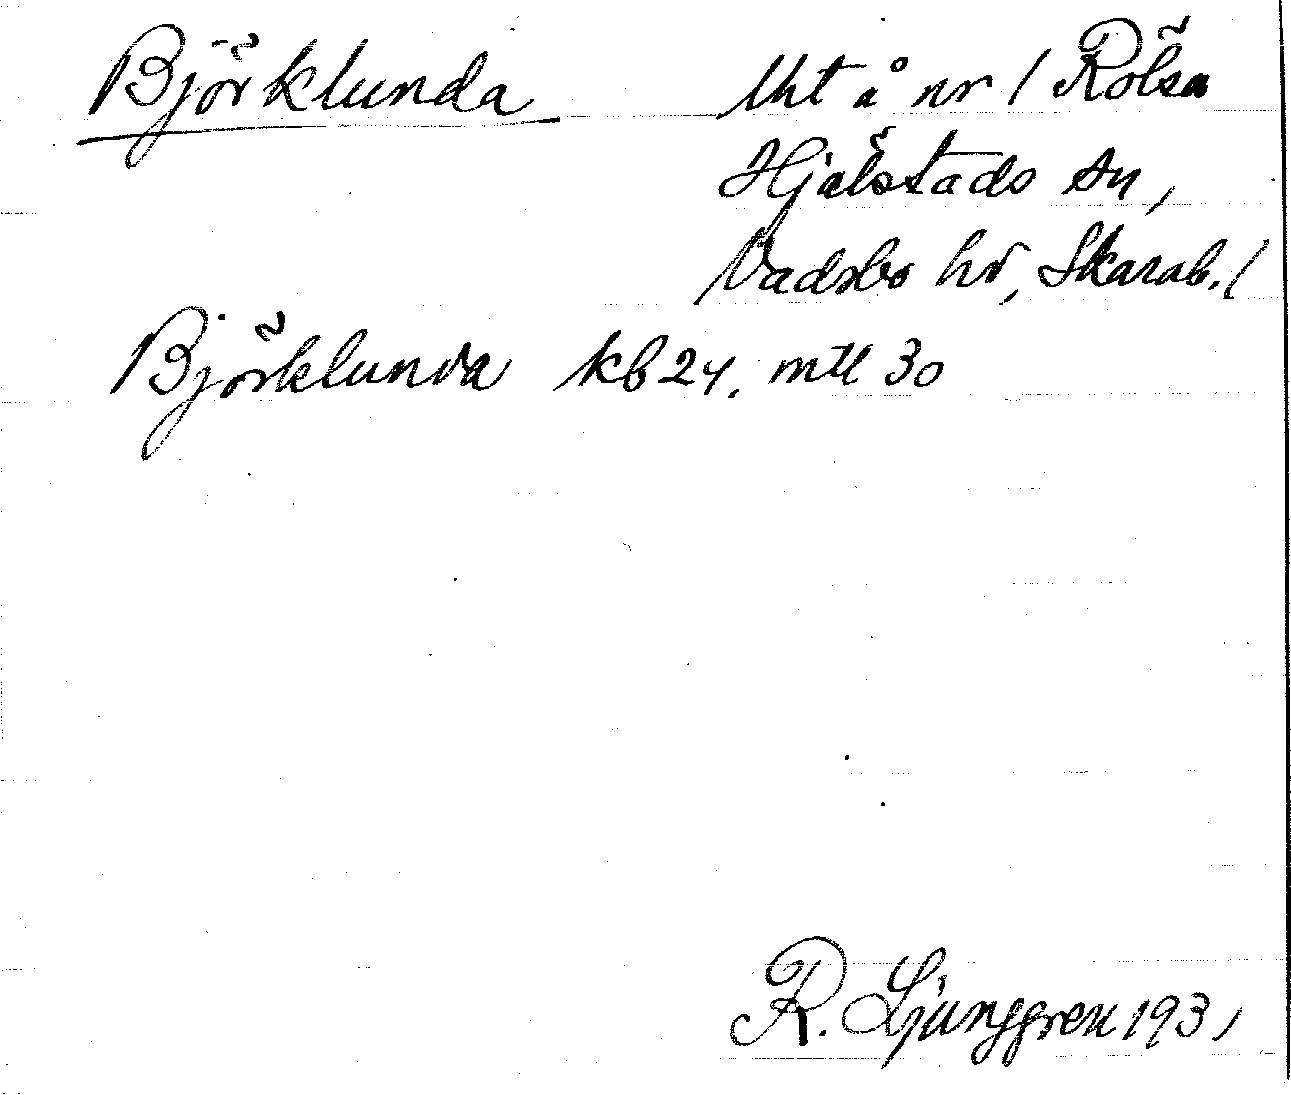 Björklunda
Uht å nr 1 Rölsa
Hjälstads sn,
Vadsbo hd, Skarab. l
Björklunda kb 24. mtl 30
R. Ljunggren 1931